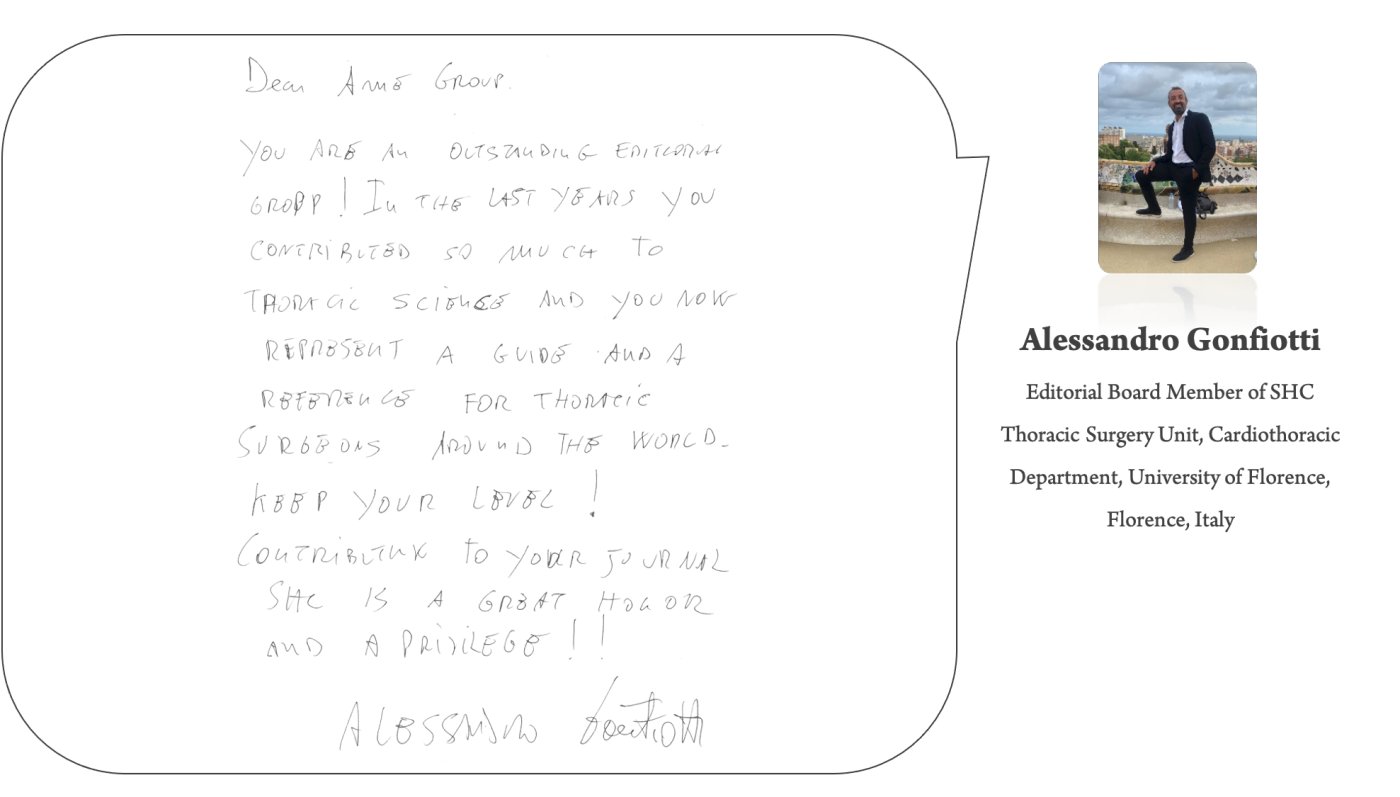 Dear AME GROUP.
YOU ARE AN OUTSTANDING EDITORIAL
GROUP! In THE LAST YEARS YOU
CONTRIBUTED SO MUCH TO
THORACIC SCIENCE AND YOU NOW
REPRESENT A GUIDE AND A
REFERENCE FOR THORACIC
SURGEONS AROUND THE WORLD.
KEEP YOUR LEVEL!
TO YOUR JOURNAL
SHC IS A GREAT HONOR
AND A PRIVILEGE!!
ALESSANDRO Gonfiotti
Alessandro Gonfiotti
Editorial Board Member of SHC
Thoracic Surgery Unit, Cardiothoracic
Department, University of Florence,
Florence, Italy